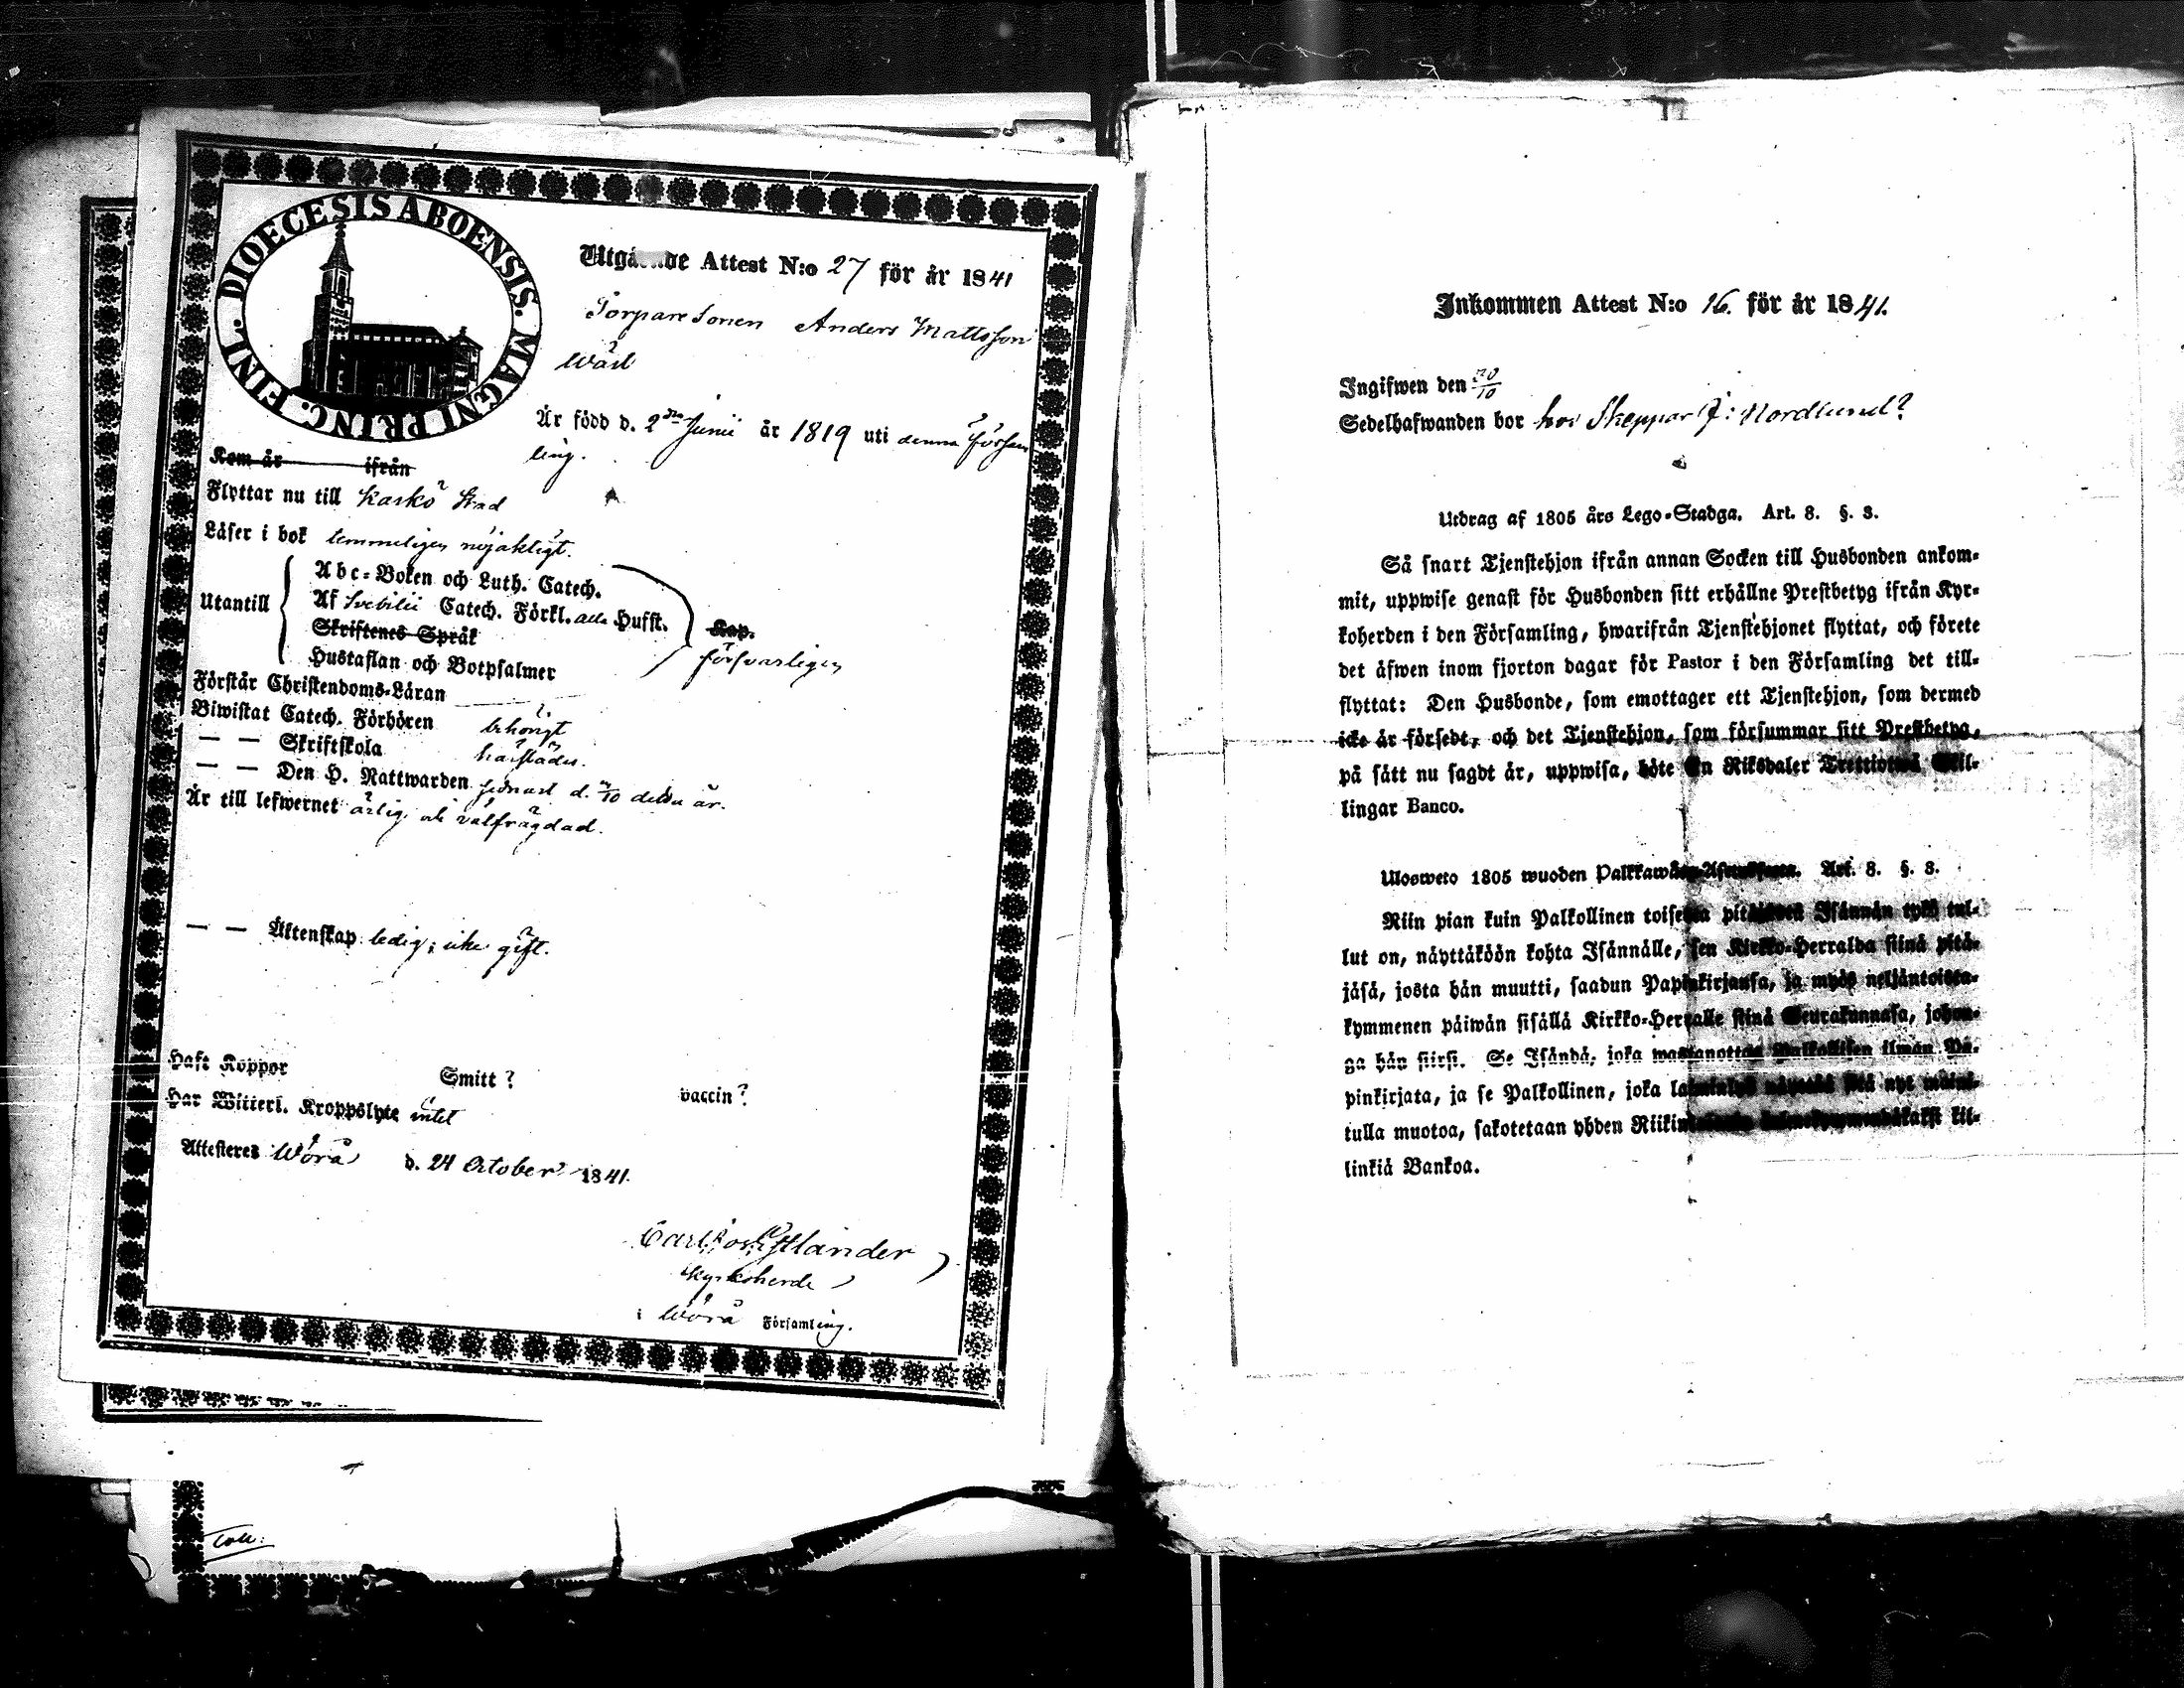 DIOECESIS ABOENSIS. MAGNI PRINC. FINL.
Utgående Attest N:o 27 för år 1841
Torpare Sonen Anders Mattsson
Är född d. 2 Junii år 1819 uti denna Försam
ling.
Kom år ifrån
Flyttar nu till Kaskö Stad
Läser i bok temmeligen nöjaktigt.
Utantill
Abc-Boken och Luth. Catech.
Af Svebilii Catech. Förkl. alla Hufst.
Skriftenes Språk
Hustaflan och Botpsalmer
Kap.
försvarligen
Förstår Christendoms-Läran
Biwistat Catech. Förhören behörigt
— — Skriftskola härstädes.
— — Den H. Nattwarden sednast d. /10 detta år.
Är till lefwernet ärlig och välfrägdad.
— — Äktenskap ledig; icke gift.
Haft Koppor Smitt? vaccin?
Har Witterl. Kroppslyte intet
Attesteres Wörå d. 24 October 1841.
Carl
Kyrkoherde
i Wörå Församling.
Coll:
Inkommen Attest N:o 16. för år 1841.
Ingifwen den 30/10
Sedelhafwanden bor hos Skeppar J: Nordlund?
Utdrag af 1805 års Lego-Stadga. Art. 8. §. 8.
Så snart Tjenstehjon ifrån annan Socken till Husbonden ankom-
mit, uppwise genast för Husbonden sitt erhållne Prestbetyg ifrån Kyr-
koherden i den Församling, hwarifrån Tjenstehjonet flyttat, och förete
det äfwen inom fjorton dagar för Pastor i den Församling det till-
flyttat: Den Husbonde, som emottager ett Tjenstehjon, som dermed
icke är försedt, och det Tjenstehjon, som försummar sitt Prestbetyg,
på sätt nu sagdt är, uppwisa, böte En Riksdaler Trettiotwå Skil-
lingar Banco.
Ulosweto 1805 wuoden Palkkawäen-Asetuksesta. Art. 8. §. 8.
Niin pian kuin Palkollinen toisesta pitäjästä Isännän tykö tul-
lut on, näyttäköön kohta Isännälle, sen Kirkko-Herralda siinä pitä-
jäsä, josta hän muutti, saadun Papinkirjansa, ja myös neljäntoista-
kymmenen päiwän sisällä Kirkko-Herralle siinä Seurakunnasa, johon-
ga hän siirsi. Se Isändä, joka wastanottaa Palkollisen ilman Pa-
pinkirjata, ja se Palkollinen, joka näyttää sitä nyt
tulla muotoa, sakotetaan yhden kil-
linkiä Bankoa.